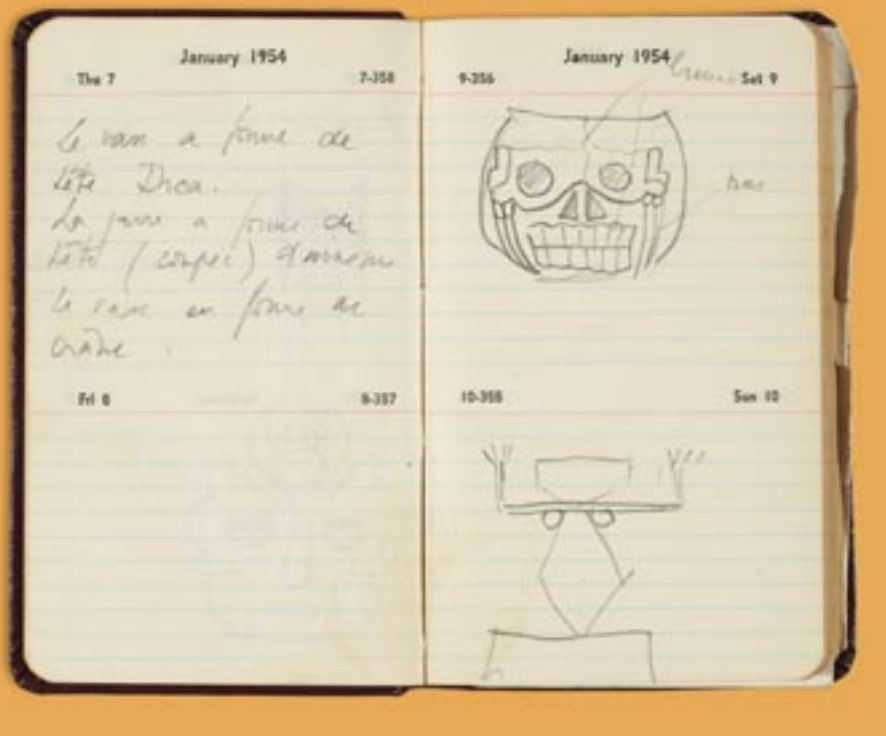 January 1954
Thu 7 7-358
Le vase a forme de
tête Inca.
La jarre a forme de
tête (coupée) d'ennemi
Le vase en forme de
crâne.
Fri 8 8-357
January 1954
9-356 Sat 9
10-355 Sun 10